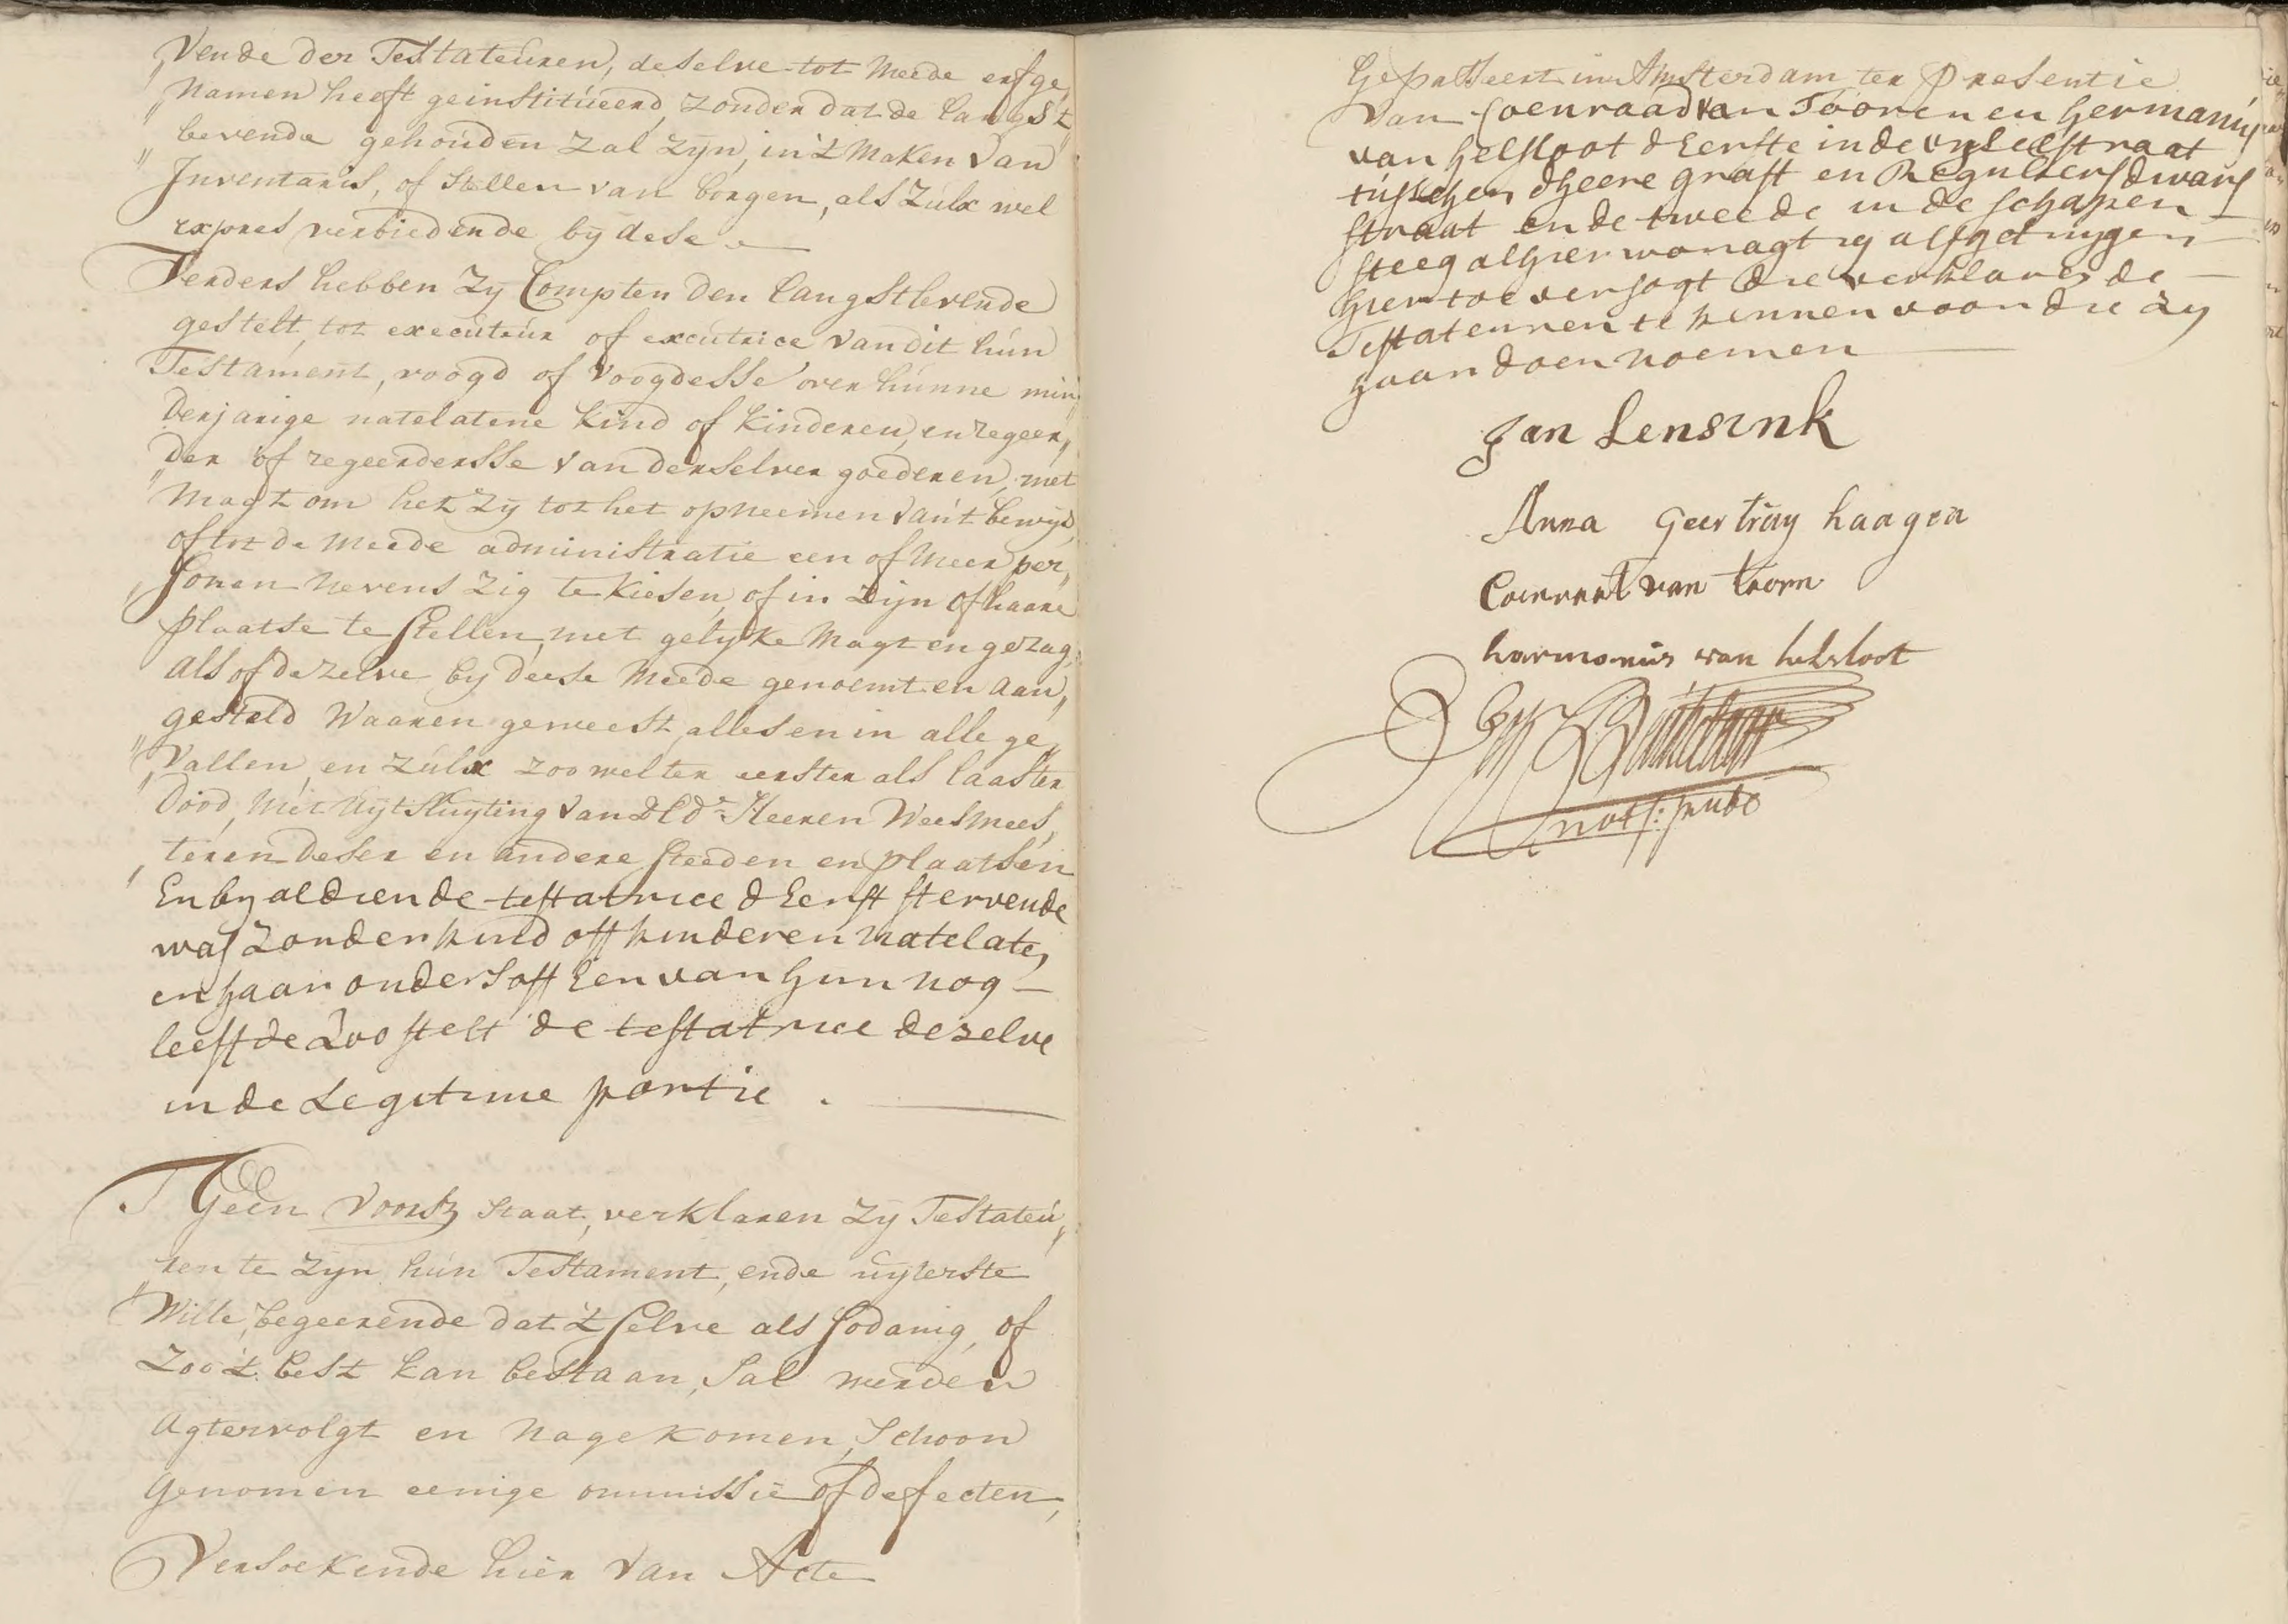 „vende der Testateuren, deselve tot meede erfge„
„namen heeft geinstitueerd, zonder dat de langst„
„levende gehouden zal zyn, in't maken van
Inventaris, of stellen van borgen, als zulx wel
expres verbiedende by dese
Verders hebben zy Compten den langstlevende
gestelt, tot executeur of executrice van dit hun
Testament, voogd of voogdesse over hunne min„
derjarige natelatene kind of kinderen, en regeer„
„der of regeerdersse van derselver goederen, met
magt om het zy tot het opneemen van't bewijs,
of tot de meede administratie een of meer per„
„sonen nevens zig te kiesen, of in zijn of haare
plaatse te stellen, met gelyke magt en gezag,
als of dezelve by deese meede genoemt en aan„
gesteld waaren geweest, alles en in alle ge„
„vallen, en zulx zoo wel ter eerster als laaster
dood, met uytsluyting van d'Ed.e Heeren Weesmees„
„teren deser en andere steeden en plaatsen
En by aldien de testatrice d'eerst stervende
was zonder kind off kinderen natelaten
en haar ouders off een van hun nog
leeffde zoo stelt de testatrice dezelve
in de Legitime portie.
T Geen voorsz staat, verklaren zy Testateu„
„ren te zyn hun Testament, ende uyterste
Wille, begeerende dat 't selve als sodanig, of
zoo 't best kan bestaan, sal werden
agtervolgt en nagekomen, schoon
genomen eenige ommissie of defecten,
Versoekende hier van Acte
Gepasseert in Amsterdam ter presentie
van Coenraad van Tooren en Hermanus
van Helsloot d'Eerste in de vyselstraat
tusschen d'heere graft en Regulier dwars
straat en de tweede in de schapen
steeg alhier woonagtig als getuygen
hier toe versogt die verklaren de
Testateuren te kennen voor die zy
haar doen noemen
Jan Lensink
Anna Geertruy haagen
Coenraet van toorn
harmanus van helsloot
not: publ